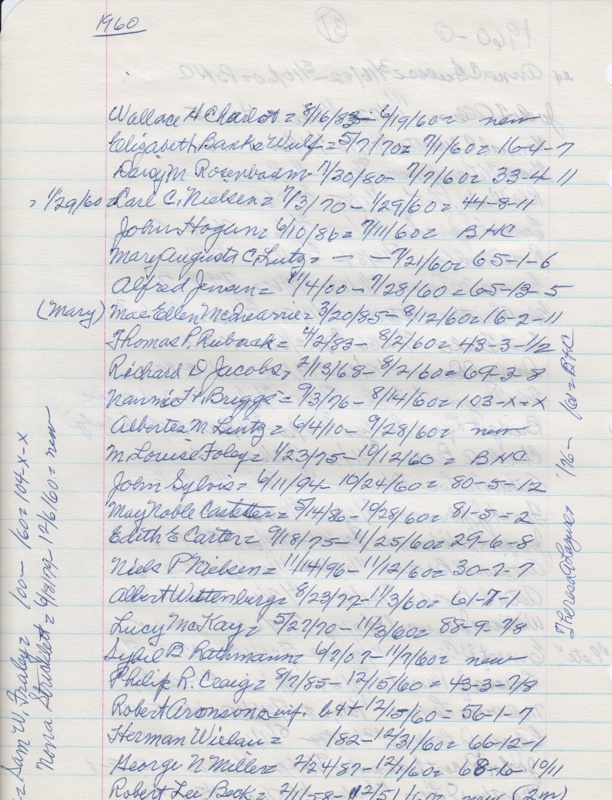 1960
Wallace H = 8/16/83 - 6/19/60 = new
Elizabeth Banks Wulf = 5/7/70 = 7/1/60 = 16-4-7
M. Rosenbaum - 7/30/80 - 7/7/60 = 33-4-11
= 1/29/60 = Carl C. Nielsen = 7/3/70 - 1/29/60 = 44-8-11
John Hogan = 6/10/86 = 7/11/60 = BHC
Mary Augusta C. Lutz = - - 7/21/60 = 65-1-6
Alfred Jensen = 11/4/00 - 7/28/60 = 65-13-5
(Mary) Mae Ellen = 3/20/85 - 8/12/60 = 16-2-11
Thomas P. = 4/2/83 - 8/2/60 = 43-3-1/2
Richard D. Jacobs, 2/13/68 - 8/2/60 = 69-3-8
Nannie H. Briggs = 9/3/76 - 8/14/60 = 103-x-x
Alberta M. Lentz = 6/4/10 - 9/28/60 = new
M. Louise Foley = 1/23/75 - 10/12/60 = BHC
John Sylvis = 6/11/94 - 10/24/60 = 80-5-12
May Noble = 5/14/86 - 10/28/60 = 81-5=2
Edith E. Carter = 9/18/75 - 11/25/60 = 29-6-8
Niels P. Nielsen = 11/14/96 - 11/12/60 = 30-7-7
Albert Wittenberg = 8/23/77 - 11/3/60 = 61-7-1
Lucy McKay = 5/27/70 - 11/3/60 = 88-9-7/8
Sybil B. Rathmann = 6/7/07 - 11/7/60 = new
Philip R. Craig = 9/7/85 - 12/15/60 = 43-3-7/8
Robert Aronson = inf. 12/15/60 = 56-1-7
Herman Wielau = 1882 - 12/31/60 = 66-12-1
George N. Miller = 2/24/87 - 12/1/60 = 68-16-10/11
Robert Lee Beck = 2/11/58 - 60 = new (2m)
Sam W. Fraley = /00 - /60 = 104-x-x
Nina = 12/6/60 = new
Theresa = 1/76 - /60 = BHC